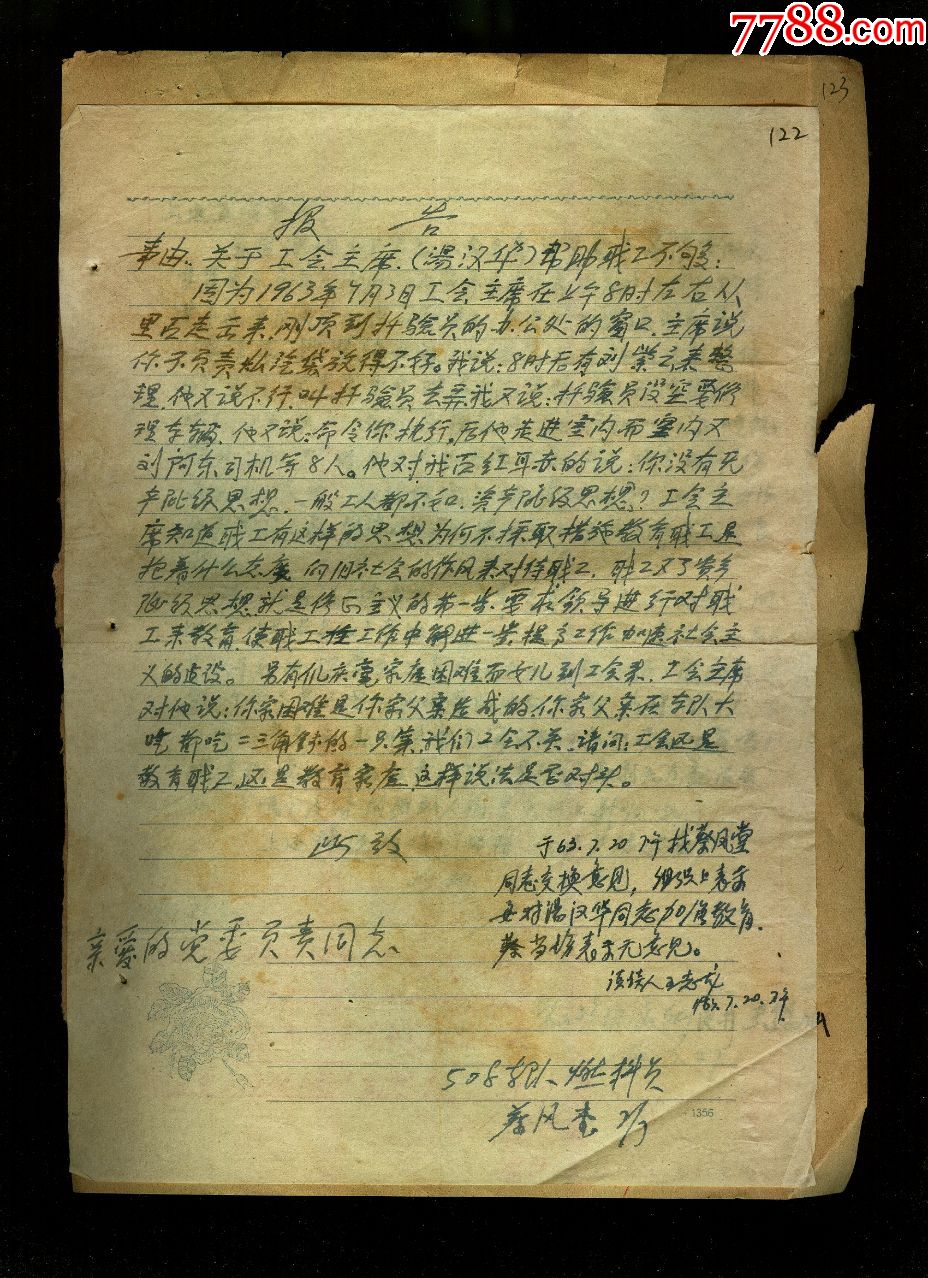 7788.com
123
122
报 告
事由.关于工会主席.(汤汉华)帮助职工不够:
因为1963年7月3日工会主席在上午8时左右从
里面走出来.刚顶到材验员的办公处的窗口.主席说
你不负责 放得不好。我说:8时后有刘紫云来整
理.他又说不行.叫材验员去弄我又说:材验员没空要修
理车辆.他又说:命令你执行.后他走进室内而室内又
刘阿东司机等8人。他对我面红耳赤的说:你没有无
产阶级思想.一般工人都不和.资产阶级思想?工会主
席知道职工有这样的思想为何不採取措施教育职工是
抱着什么态度 向旧社会的作风来对待职工.职工又了资产
阶级思想就是修正主义的第一步.要求领导进行对职
工来教育.使职工在工作中 进一步提高工作加速社会主
义的建设。另有 家庭困难而女儿到工会来.工会主席
对他说:你家困难是你家父亲造成的.你家父亲在车队大
吃都吃二三角钱的一只菜.我们工会不关.请问:工会还是
教育职工.还是教育家属.这样说法是否对头。
此致
于63.7.20下午找蔡凤堂
同志交换意见,组织上表示
要对汤汉华同志加强教育.
蔡当场表示无意见。
谈话人王志成
63.7.20.下午
亲爱的党委负责同志
508车队 燃料员
蔡凤堂
1356